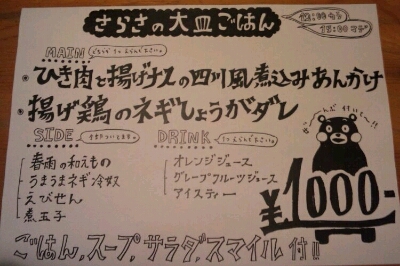 さらさの大皿ごはん
12:00から
15:00まで
MAIN どちらか1つえらんでください。
・ひき肉と揚げナスの四川風煮込みあんかけ
・揚げ鶏のネギしょうがダレ
SIDE
春雨の和えもの
うまうまネギ冷奴
えびせん
煮玉子
DRINK 1つえらんでください。
オレンジジュース
グレープフルーツジュース
アイスティー
ぜーんぶ付いて〜!!
¥1000-
ごはん,スープ,サラダ,スマイル付!!